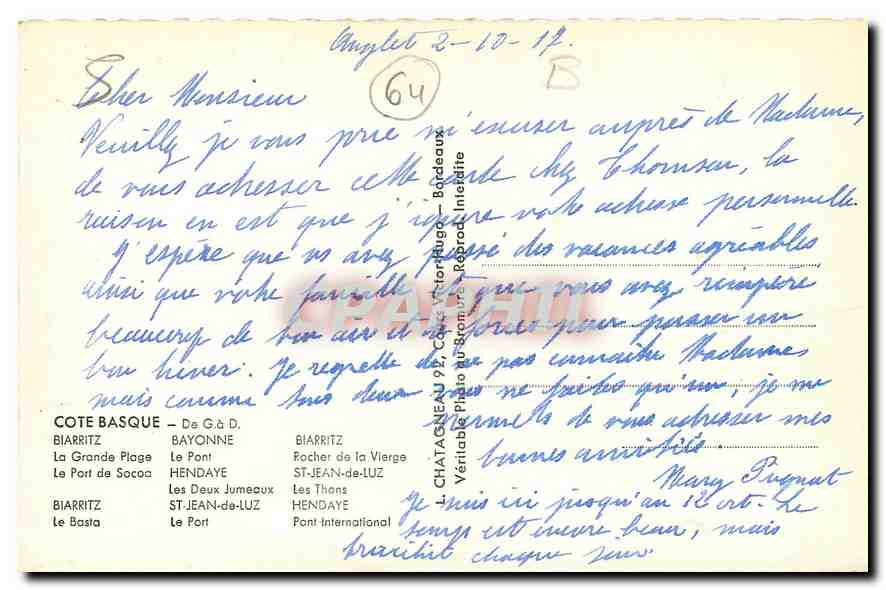 Anglet 2-10-17.
64
B
Cher Monsieur
Veuillez je vous prie m'excuser auprès de Madame,
de vous adresser cette carte chez Thomseu, la
raison en est que j'ignore votre adresse personnelle.
J'espère que vs avez passé des vacances agréables
ainsi que votre famille et que vous avez récupéré
beaucoup de bon air et de forces pour passer un
bon hiver. Je regrette de ne pas connaître Madame
mais comme tous deux vous ne faites qu'un, je me
permets de vous adresser mes
bonnes amitiés.
Mary Pugnat
Je suis ici jusqu'au 12 oct. Le
temps est encore beau, mais
chaque jour.
COTE BASQUE — De G. à D.
BIARRITZ BAYONNE BIARRITZ
La Grande Plage Le Pont Rocher de la Vierge
Le Port de Socoa HENDAYE ST-JEAN-de-LUZ
Les Deux Jumeaux Les Thons
BIARRITZ ST-JEAN-de-LUZ HENDAYE
Le Basta Le Port Pont-International
L. CHATAGNEAU 92, Cours Victor-Hugo — Bordeaux
Véritable Photo au Bromure - Reprod. Interdite
CPARHTI